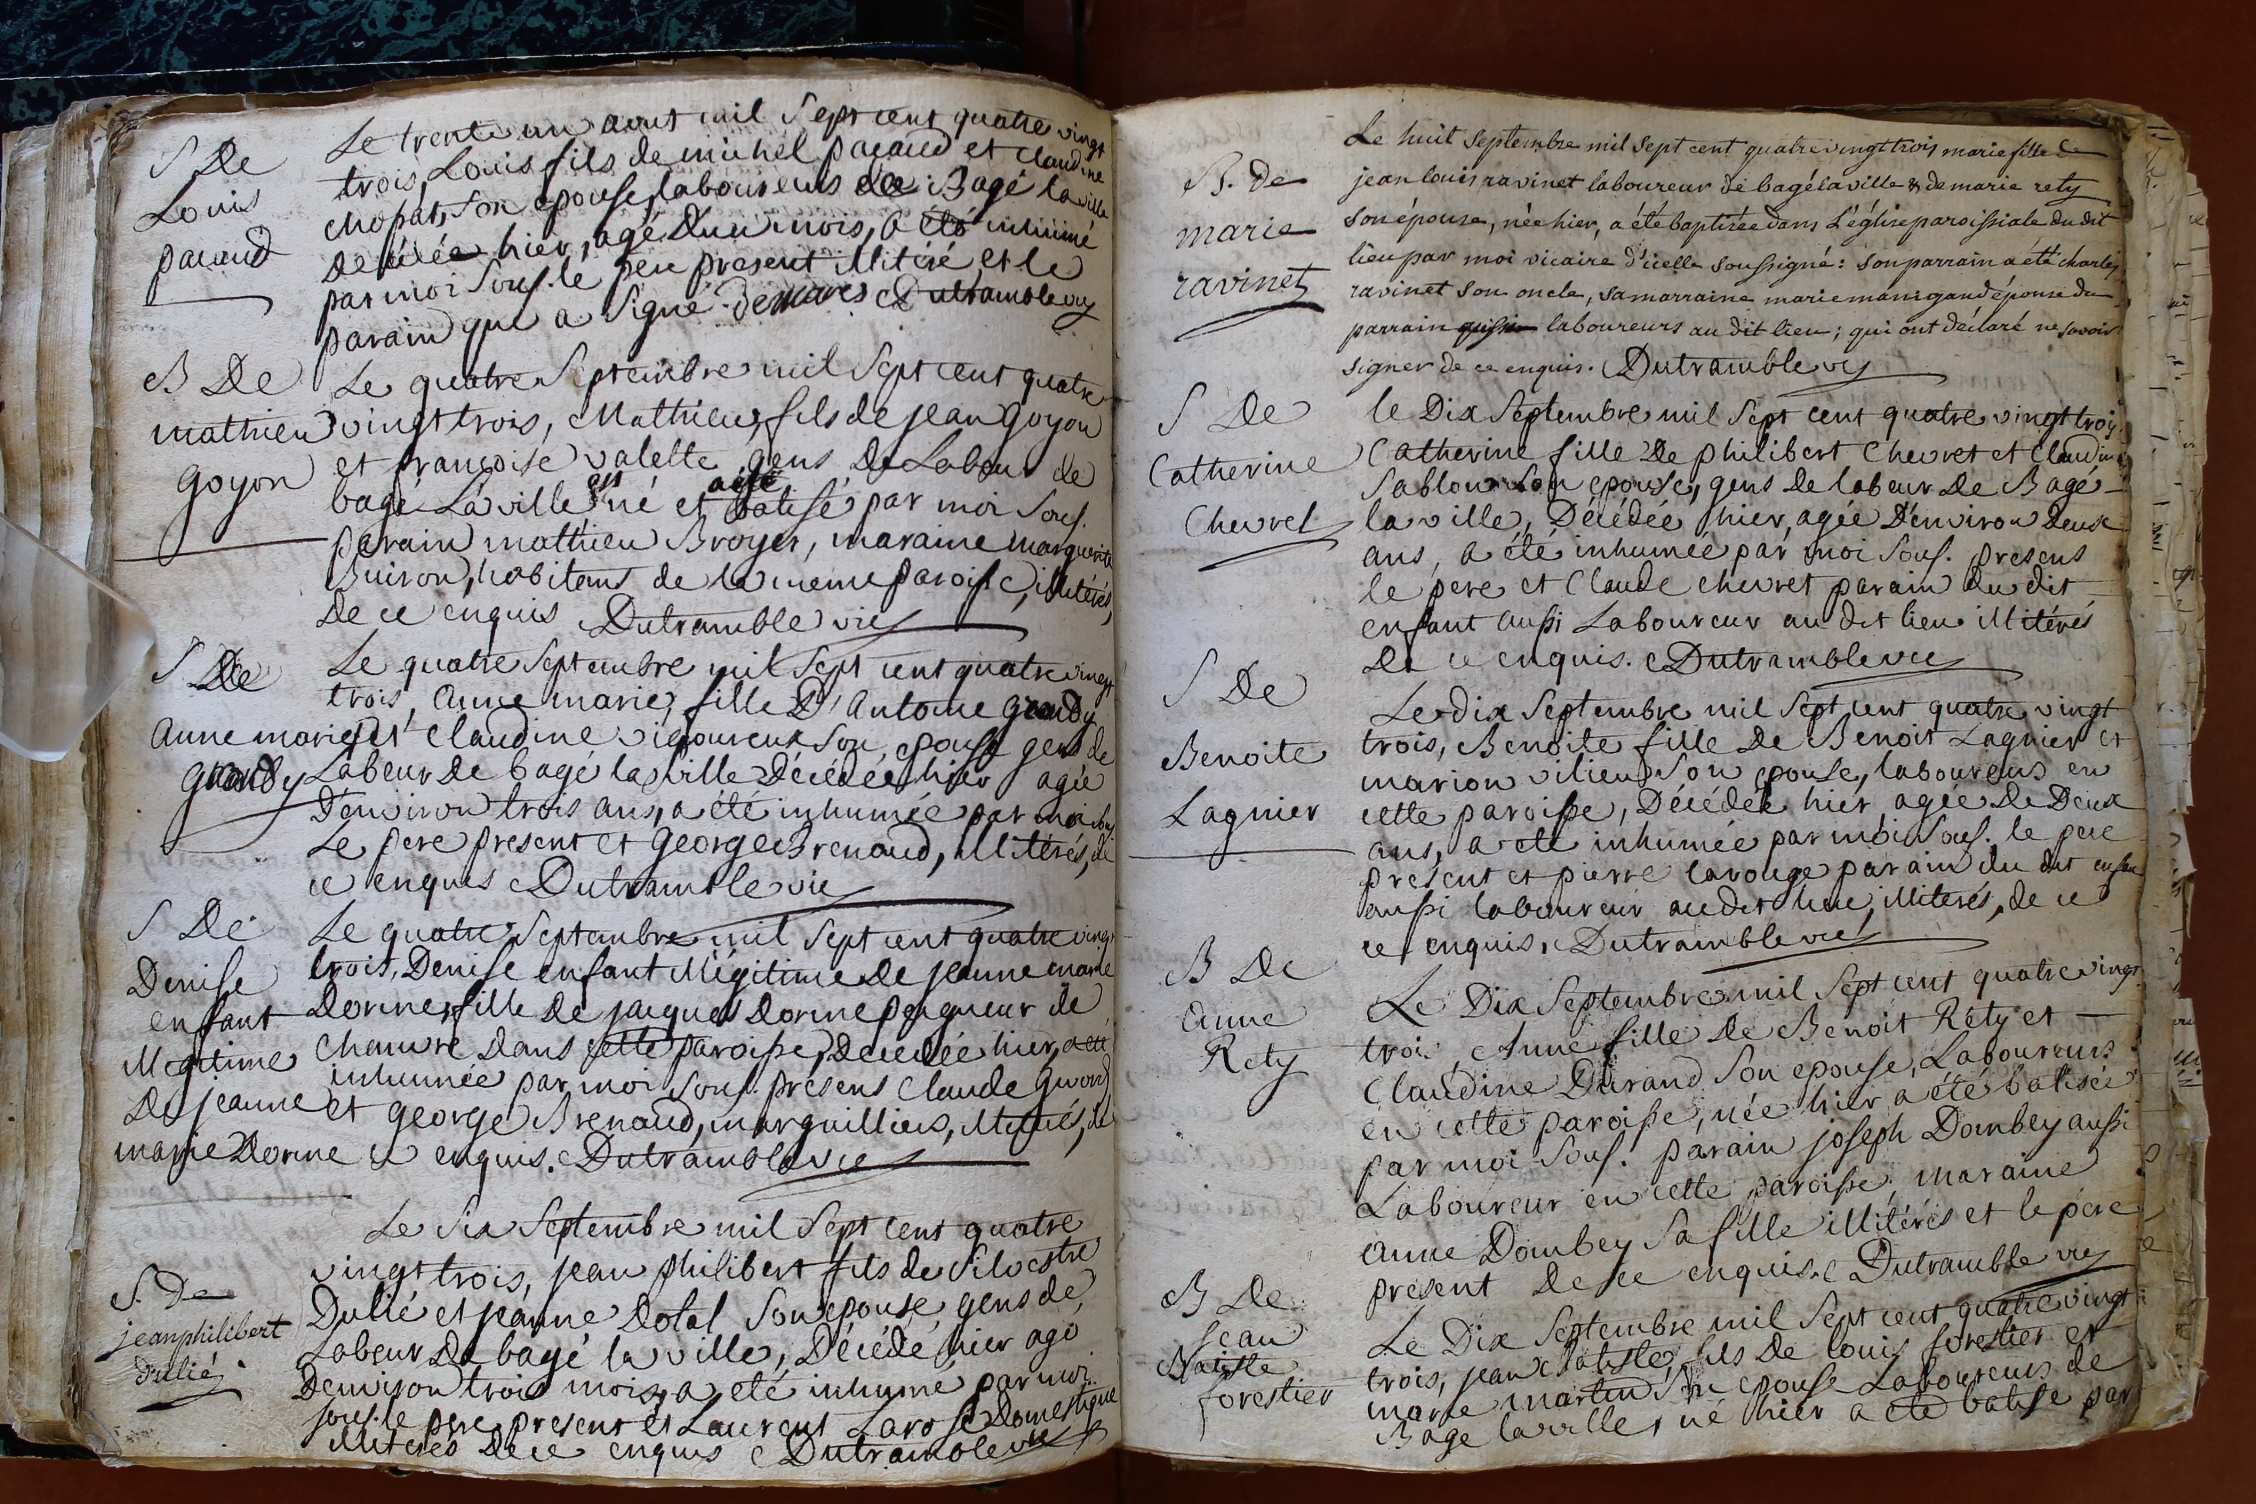 S De
Louis
pacaud
Le trente un aout mil Sept cent quatre vingt
trois, Louis fils de michel pacaud et claudine
chopat, son epouse, laboureurs de Bagé la ville
Decédée hier, agé D'un mois, a été inhumé
par moi Sous. le pere present illitéré et le
parain qui a signé Demares Dutramble vic
B De
mathieu
Goyon
Le quatre Septembre mil Sept cent quatre
vingt trois, Mathieu, fils de jean Goyon
et françoise valette gens De Labeur de
bagé La ville est né et a été batisé par moi Sous.
parain mathieu Broyer, maraine marguerite
Buiron, habitans de la meme paroisse, illitérés,
De ce enquis Dutramble vic
S De
Anne marie
Grandy
Le quatre Septembre mil Sept cent quatre vingt
trois, Anne marie, fille D'Antoine Grandy
et Claudine vigoureux Son epouse gens de
Labeur De bagé la ville Décédée hier agée
D'environ trois ans, a été inhumée par moi Sous.
Le pere present et George Brenaud, illitérés, de
ce enquis Dutramble vic
S De
Denise
enfant
illegitime
De jeanne
marie Dorme
Le quatre Septembre mil Sept cent quatre vingt
trois, Denise enfant illégitime De jeanne marie
Dorme, fille De jacques Dorme peigneur de
Chanvre Dans cette paroisse, Decedée hier, a été
inhumée par moi Sous. présens Claude
et George Brenaud, marguilliers, illiterés, de
ce enquis. Dutramble vic
S. De
jean philibert
Dulié
Le Six Septembre mil Sept cent quatre
vingt trois, jean philibert fils de Silvestre
Dulié et jeanne Dotal Son epouse, gens de
Labeur De bagé la ville, Décédé hier agé
D'environ trois mois, a eté inhumé par moi
Sous. le pere present et Laurent Larose Domestique
illiterés De ce enquis Dutramble vic
B. De
marie
ravinet
Le huit Septembre mil Sept cent quatre vingt trois marie fille de
jean louis ravinet laboureur de bagé la ville & de marie rety
son épouse, née hier, a été baptisée dans L'église paroissiale du dit
lieu par moi vicaire d'icelle soussigné : son parrain a été charles
ravinet son oncle, sa marraine marie manigand épouse du
parrain laboureurs au dit lieu ; qui ont déclaré ne savoir
signer de ce enquis. Dutramble vic
S De
Catherine
Chevret
le Dix Septembre mil Sept cent quatre vingt trois
Catherine fille De philibert Chevret et Claudine
Sablon Son epouse, gens de labeur De Bagé
la ville, Décédée hier, agée D'environ Deux
ans, a été inhumée par moi Sous. presens
le pere et Claude chevret parain du dit
enfant aussi Laboureur au dit lieu illitérés
De ce enquis. Dutramble vic
S De
Benoite
Lagnier
Le dix Septembre mil Sept cent quatre vingt
trois, Benoite fille De Benoit Lagnier et
marion vilieu Son epouse, laboureurs en
cette paroisse, Décédée hier agée De Deux
ans, a eté inhumée par moi Sous. le pere
present et pierre larouge parain du dit enfan
aussi laboureur au dit lieu, illiterés, de ce
ce enquis, Dutramble vic
B De
Anne
Rety
Le Dix Septembre mil Sept cent quatre vingt
trois, Anne fille De Benoit Réty et
Claudine Durand Son epouse, Laboureurs
en cette paroisse, née hier a été batisée
par moi Sous. parain joseph Dombey aussi
Laboureur en cette paroisse, maraine
Anne Dombey Sa fille illitérés et le pére
présent De ce enquis. Dutramble vic
B De
Jean
Batiste
forestier
Le Dix Septembre mil Sept cent quatre vingt
trois, jean Batiste, fils De louis forestier et
marie martin Son epouse Laboureurs de
Bagé la ville, né hier a été batisé par